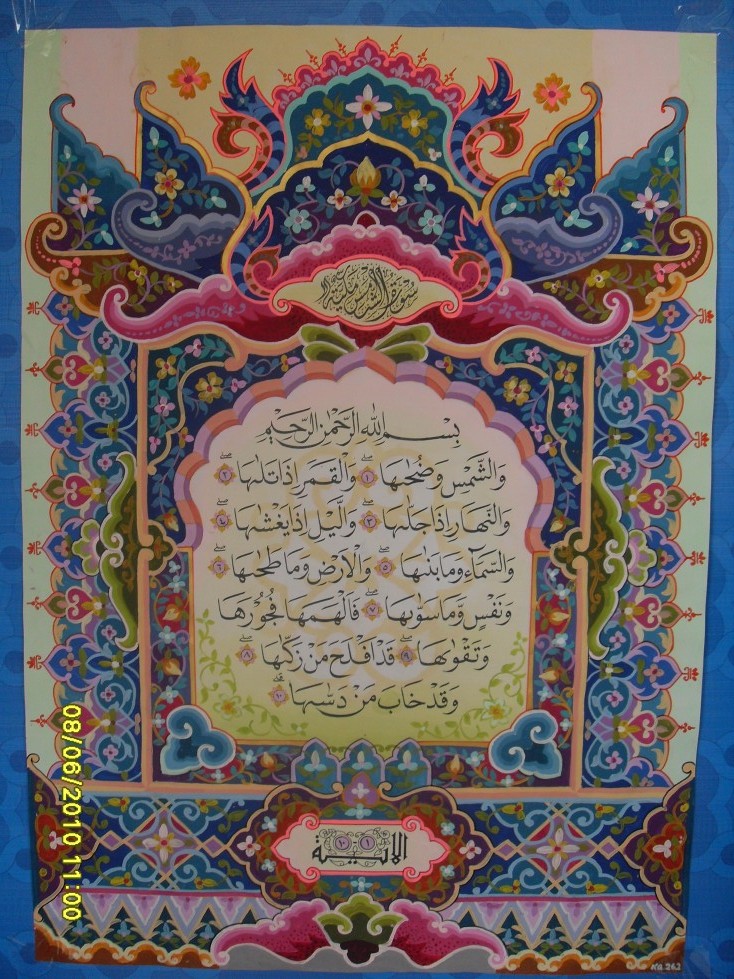 سورة الشمس مكية
بِسْمِ اللهِ الرَّحْمٰنِ الرَّحِيْمِ
وَالشَّمْسِ وَضُحٰىهَا ۝١ وَالْقَمَرِ اِذَا تَلٰىهَا ۝٢
وَالنَّهَارِ اِذَا جَلّٰىهَا ۝٣ وَالَّيْلِ اِذَا يَغْشٰىهَا ۝٤
وَالسَّمَاءِ وَمَا بَنٰىهَا ۝٥ وَالْاَرْضِ وَمَا طَحٰىهَا ۝٦
وَنَفْسٍ وَّمَا سَوّٰىهَا ۝٧ فَاَلْهَمَهَا فُجُوْرَهَا
وَتَقْوٰىهَا ۝٩ قَدْ اَفْلَحَ مَنْ زَكّٰىهَا ۝٨
وَقَدْ خَابَ مَنْ دَسّٰىهَا ۝١٠
الاية ١ - ١٠
NQ 262
08/06/2010 11:00